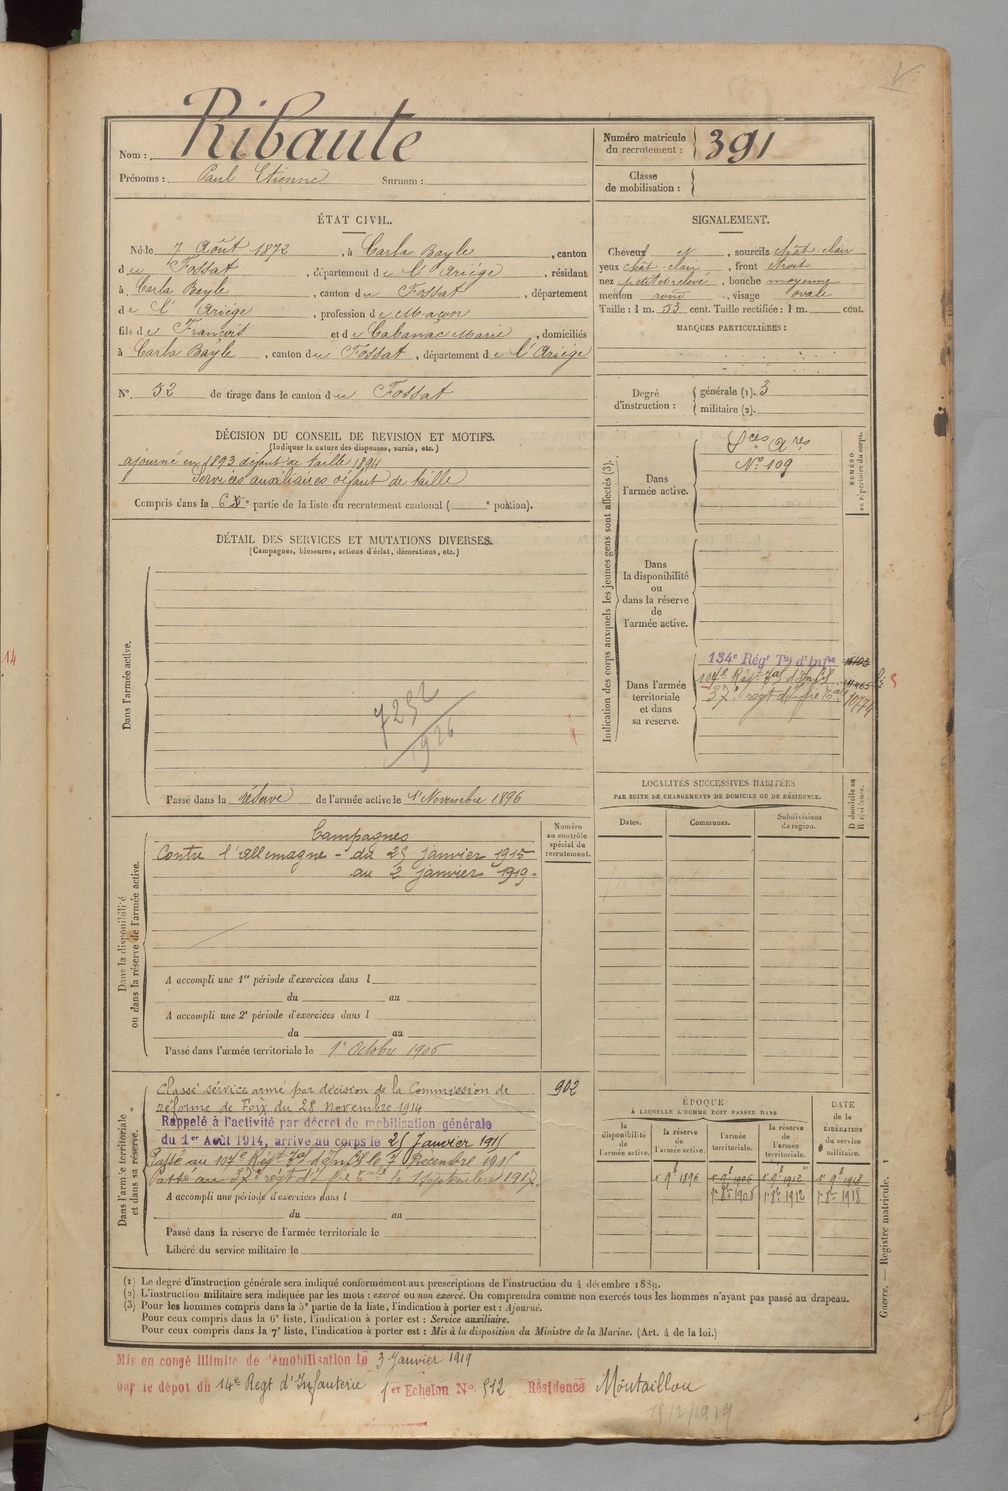 Ribaute
Nom :
Prénoms : Paul Etienne Surnom :
Numéro matricule
du recrutement : 391
Classe
de mobilisation :
ÉTAT CIVIL.
Né le 7 Août 1872, à Carla Bayle, canton
du Fossat, département de l'Ariège, résidant
à Carla Bayle, canton du Fossat, département
de l'Ariège, profession de Maçon
fils de François et de Cabanac Marie, domiciliés
à Carla Bayle, canton du Fossat, département de l'Ariège
N° 52 de tirage dans le canton du Fossat
SIGNALEMENT.
Cheveux N, sourcils chât-clair
yeux chât-clair, front étroit
nez petit relevé, bouche moyenne
menton rond, visage ovale
Taille : 1 m. 53 cent. Taille rectifiée : 1 m. cent.
MARQUES PARTICULIÈRES :
Degré
d'instruction :
générale (1). 3
militaire (2).
DÉCISION DU CONSEIL DE REVISION ET MOTIFS.
(Indiquer la nature des dispenses, sursis, etc.)
ajourné en 1893 défaut de taille 1894
Services auxiliaires défaut de taille
Compris dans la 6e partie de la liste du recrutement cantonal ( e portion).
DÉTAIL DES SERVICES ET MUTATIONS DIVERSES.
(Campagnes, blessures, actions d'éclat, décorations, etc.)
Dans l'armée active.
7252
1926
Passé dans la réserve de l'armée active le 1er Novembre 1896
Indication des corps auxquels les jeunes gens sont affectés (3).
NUMÉRO
au répertoire du corps.
Dans
l'armée active.
Sces Ares
N° 109
Dans
la disponibilité
ou
dans la réserve
de
l'armée active.
Dans l'armée
territoriale
et dans
sa réserve.
134e Régt Tal d'Infie
107e Régt Tal d'Infie
37e regt d'Infie
10774
LOCALITÉS SUCCESSIVES HABITÉES
PAR SUITE DE CHANGEMENTS DE DOMICILE OU DE RÉSIDENCE.
D domicile ou
R résidence.
Dates.
Communes.
Subdivisions
de région.
Dans la disponibilité
ou dans la réserve de l'armée active.
Campagnes
Contre l'Allemagne - du 25 janvier 1915
au 2 janvier 1919.
Numéro
au contrôle
spécial du
recrutement.
A accompli une 1re période d'exercices dans l
du au
A accompli une 2e période d'exercices dans l
du au
Passé dans l'armée territoriale le 1er Octobre 1906
Dans l'armée territoriale
et dans sa réserve.
Classé sérvice armé par décision de la Commission de 902
réforme de Foix du 28 Novembre 1914
Rappelé à l'activité par décret de mobilisation générale
du 1er Août 1914, arrive au corps le 25 Janvier 1915
Passé au 107e Régt Tal d'Infie le 7 Decembre 1915
Passé au 37e regt d'Infie le 1 Septembre 1917.
A accompli une période d'exercices dans l
du au
Passé dans la réserve de l'armée territoriale le
Libéré du service militaire le
ÉPOQUE
À LAQUELLE L'HOMME DOIT PASSER DANS
la
disponibilité
de
l'armée active.
la réserve
de
l'armée active.
l'armée
territoriale.
la réserve
de
l'armée
territoriale.
DATE
de la
LIBÉRATION
du service
militaire.
1er 9b 1896 1er 9b 1906 1er 9b 1912 1er 9b 1918
1er 8b 1906 1er 8b 1912 1er 8b 1918
(1) Le degré d'instruction générale sera indiqué conformément aux prescriptions de l'instruction du 4 décembre 1889.
(2) L'instruction militaire sera indiquée par les mots : exercé ou non exercé. On comprendra comme non exercés tous les hommes n'ayant pas passé au drapeau.
(3) Pour les hommes compris dans la 5e partie de la liste, l'indication à porter est : Ajourné.
Pour ceux compris dans la 6e liste, l'indication à porter est : Service auxiliaire.
Pour ceux compris dans la 7e liste, l'indication à porter est : Mis à la disposition du Ministre de la Marine. (Art. 4 de la loi.)
Guerre. — Registre matricule. 1
Mis en congé illimité de démobilisation le 3 Janvier 1919
par le dépôt du 14e Regt d'Infanterie 1er Echelon No 512 Résidence Montaillou
15/2/1919
14